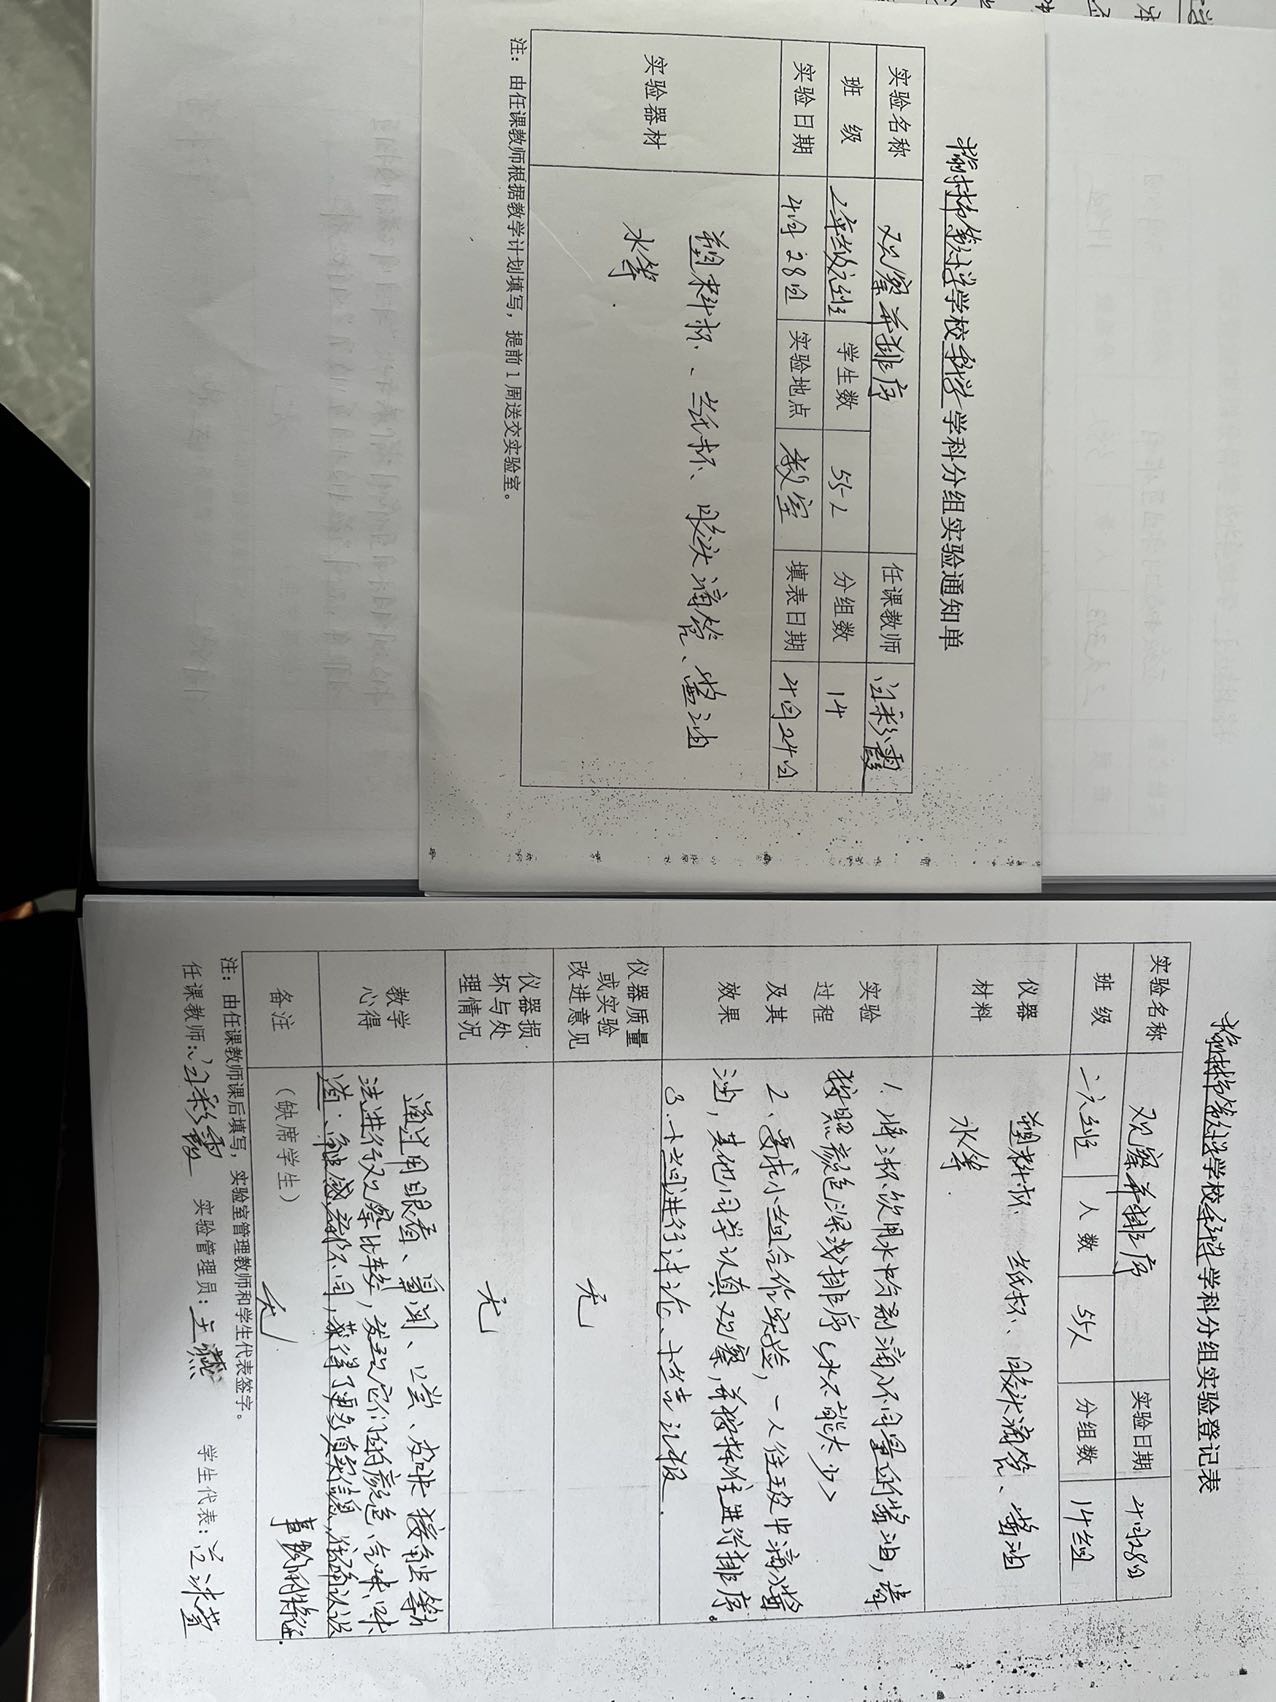 学校科学学科分组实验通知单
实验名称 观察并排序 任课教师 闫彩霞
班 级 2年级六班 学生数 55人 分组数 14
实验日期 4月28日 实验地点 教室 填表日期 4月24日
实验器材 塑料杯、纸杯、胶头滴管、酱油
水等.
注：由任课教师根据教学计划填写，提前1周送交实验室。
学校科学学科分组实验登记表
实验名称 观察并排序 实验日期 4月28日
班 级 二六班 人 数 55人 分组数 14组
仪器
材料
塑料杯、纸杯、胶头滴管、酱油
水等.
实验
过程
及其
效果
1、将杯次用水中分别滴入不同量的酱油，
按照颜色深浅排序(水不能太少)
2、要求小组合作实验，一人往玻中滴酱
油，其他同学认真观察，并按标准进行排序。
3、小组间进行讨论、小结汇报.
仪器质量
或实验
改进意见
无
仪器损
坏与处
理情况
无
教学
心得
通过用眼看、鼻闻、口尝、皮肤接触等
法进行观察比较，发现它们的颜色、气味、味
道、触感都不同，获得了更多真实信息，准确认识
事物的特征.
备注 (缺席学生) 无
注：由任课教师课后填写，实验室管理教师和学生代表签字。
任课教师：闫彩霞 实验管理员：王燕 学生代表：